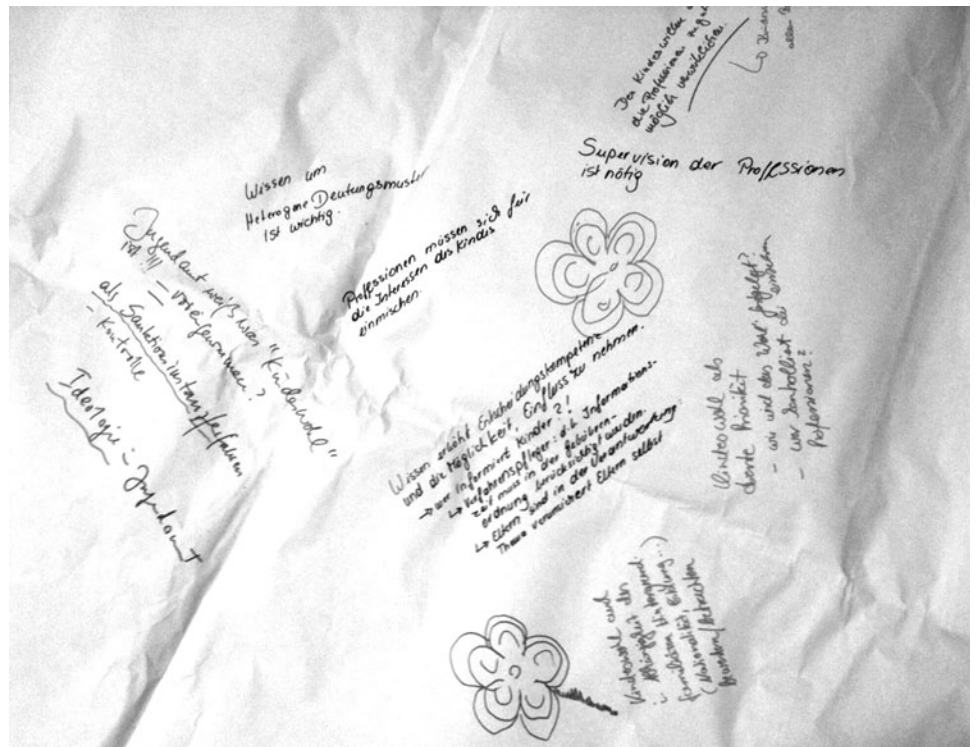 Der Kindeswille
die Professionen
möglich verwirklichen.
Supervision der Professionen
ist nötig
Wissen um
Heterogene Deutungsmuster
Ist wichtig.
Professionen müssen sich für
die Interessen des Kindes
einmischen.
Jugendamt weiß was "Kindeswohl"
ist!!!
– voreingenommen?
als Sanktionsinstanz
– Kontrolle
Ideologie – Jugendamt
Wissen erhöht Entscheidungskompetenz
und die Möglichkeit, Einfluss zu nehmen.
→ wer informiert Kinder?!
↳ Verfahrenspfleger: d.h. Informations-
zeit muss in der Gebühren-
ordnung berücksichtigt werden.
↳ Eltern sind in der Verantwortung;
Thema verunsichert Eltern selbst
Kindeswohl als
oberste Priorität
– wie wird das Wohl
– wer kontrolliert die anderen
Professionen?
Kindeswohl auch
Abhängigkeit des
familiären Hintergrund.
(Nationalität, Bildung...)